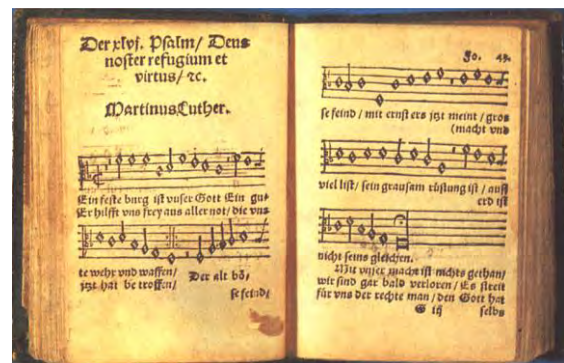 Der xlvj. Psalm/ Deus
noster refugium et
virtus/ ꝛc.
Martinus Luther.
Ein feste burg ist vnser Gott Ein gut-
Er hilfft vns frey aus aller not/ die vns
te wehr vnd waffen/ Der alt bö,
jtzt hat be troffen/
se feind/
Fo. 43.
se feind/ mit ernst ers jtzt meint/ gros
(macht vnd
viel list/ sein grausam rüstung ist/ auff
erd ist
nicht seins gleichen.
Mit vnser macht ist nichts gethan/
wir sind gar bald verloren/ Es streit
für vns der rechte man/ den Gott hat
G iij selbs